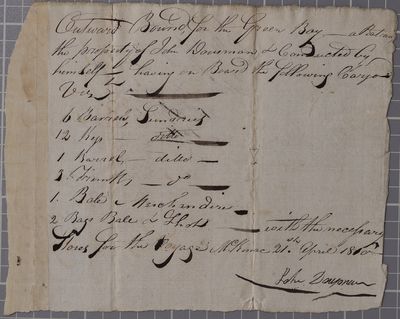 Outward Bound, for the Green Bay — a Batteau
the property of John Dousman & Conducted by
himself — having on Board the following Cargo
Viz
6 Barrels, Sundries
12 Kegs — ditto
1 Barrel, — ditto —
2 Trunks, — do
1. Bale Merchandise
2 Bags Ball & Shot — with the necessary
Stores for the Voyage Mckinac 21st April 18
John Dousman